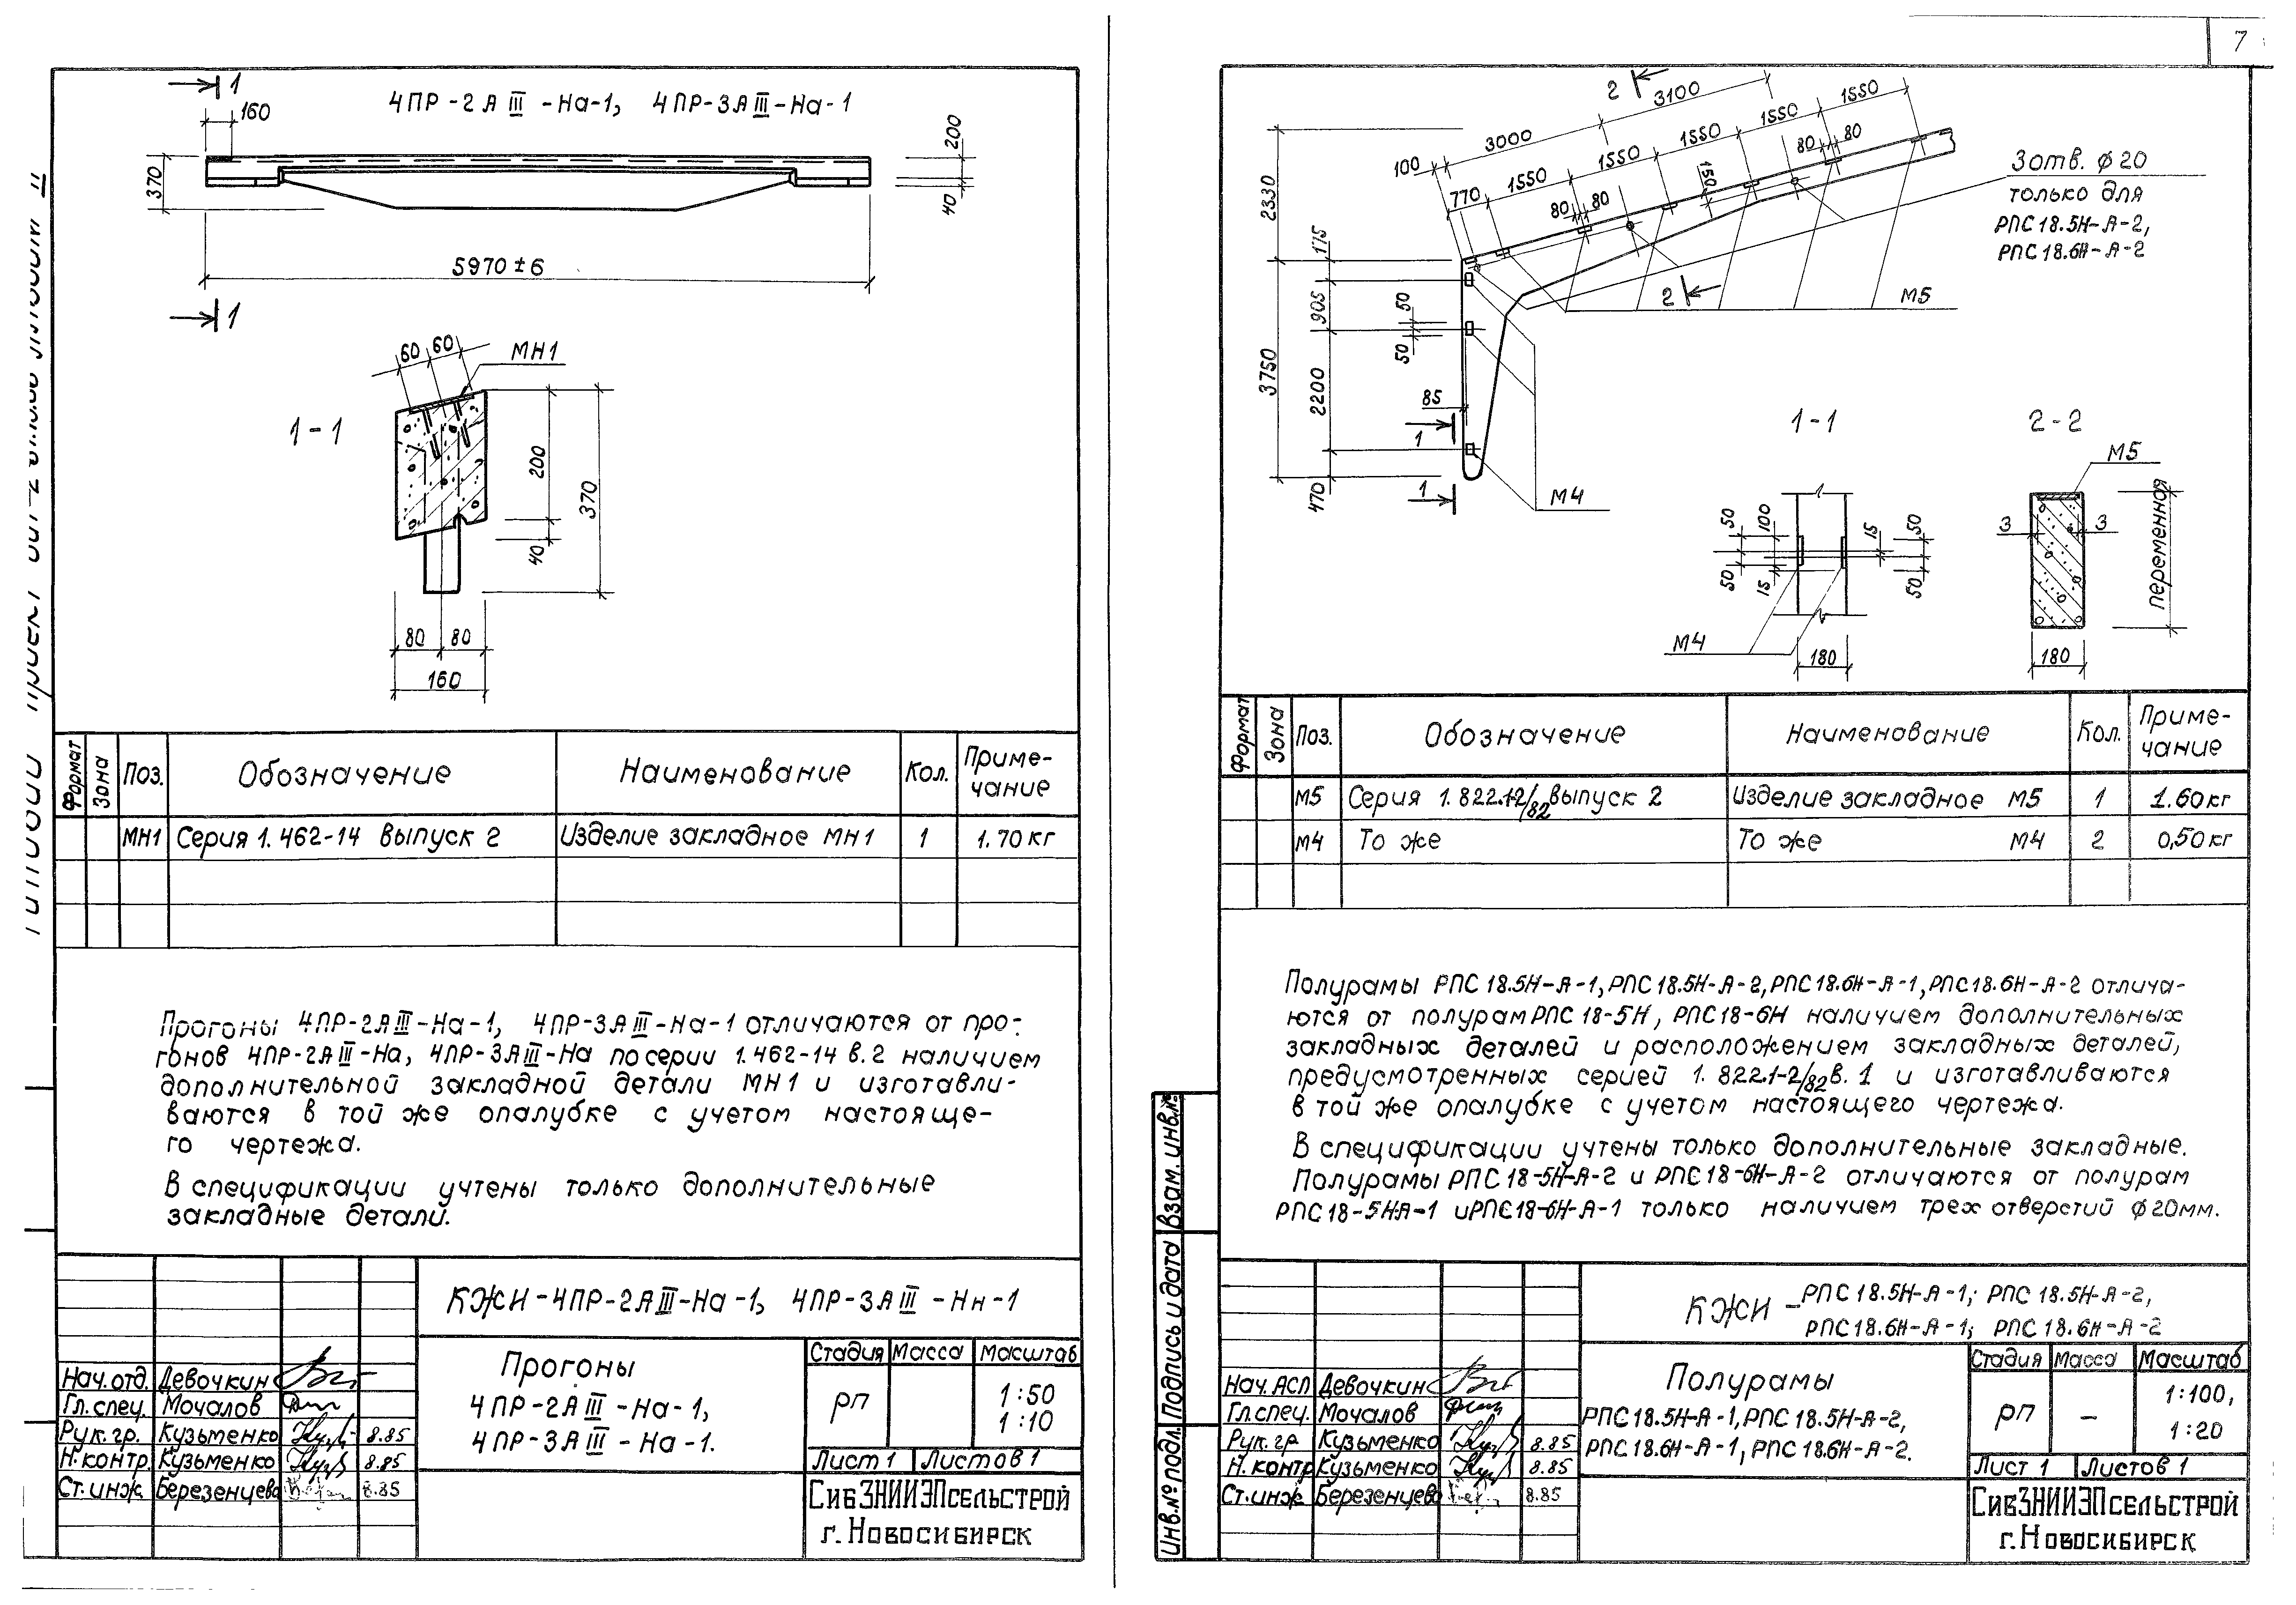 7
1
4ПР-2АIII-На-1, 4ПР-3АIII-На-1
160
370
200
40
5970±6
1
1-1
60 60
МН1
200
370
40
80 80
160
Формат Зона Поз. Обозначение Наименование Кол. Приме-
чание
МН1 Серия 1.462-14 выпуск 2 Изделие закладное МН1 1 1.70кг
Прогоны 4ПР-2АIII-На-1, 4ПР-3АIII-На-1 отличаются от про-
гонов 4ПР-2АIII-На, 4ПР-3АIII-На по серии 1.462-14 в.2 наличием
дополнительной закладной детали МН1 и изготавли-
ваются в той же опалубке с учетом настояще-
го чертежа.
В спецификации учтены только дополнительные
закладные детали.
КЖИ-4ПР-2АIII-На-1, 4ПР-3АIII-Нн-1
Прогоны
4ПР-2АIII-На-1,
4ПР-3АIII-На-1.
Стадия Масса Масштаб
РП 1:50
1:10
Лист 1 Листов 1
СибЗНИИЭПсельстрой
г. Новосибирск
Нач.отд. Девочкин
Гл.спец. Мочалов
Рук.гр. Кузьменко 8.85
Н.контр. Кузьменко 8.85
Ст.инж. Березенцева 8.85
2
3100
1550
1550
3000
1550
1550
1550
100
770
80 80
80 80
150
2330
175
905
3750
2200
470
50
50
85
1
1
2
3 отв. φ20
только для
РПС18.5Н-А-2,
РПС18.6Н-А-2
М5
М4
1-1
50
50
100
15
15
50
50
М4
180
2-2
М5
3 3
переменная
180
Формат Зона Поз. Обозначение Наименование Кол. Приме-
чание
М5 Серия 1.822.1-2/82 выпуск 2 Изделие закладное М5 1 1.60кг
М4 То же То же М4 2 0,50кг
Полурамы РПС18.5Н-А-1, РПС18.5Н-А-2, РПС18.6Н-А-1, РПС18.6Н-А-2 отлича-
ются от полурам РПС18-5Н, РПС18-6Н наличием дополнительных
закладных деталей и расположением закладных деталей,
предусмотренных серией 1.822.1-2/82 в.1 и изготавливаются
в той же опалубке с учетом настоящего чертежа.
В спецификации учтены только дополнительные закладные.
Полурамы РПС18-5Н-А-2 и РПС18-6Н-А-2 отличаются от полурам
РПС18-5НА-1 и РПС18-6Н-А-1 только наличием трех отверстий φ20мм.
Взам. инв.№
Подпись и дата
Инв.№ подл.
КЖИ - РПС18.5Н-А-1; РПС18.5Н-А-2,
РПС18.6Н-А-1; РПС18.6Н-А-2
Полурамы
РПС18.5Н-А-1, РПС18.5Н-А-2,
РПС18.6Н-А-1, РПС18.6Н-А-2.
Стадия Масса Масштаб
РП - 1:100,
1:20
Лист 1 Листов 1
СибЗНИИЭПсельстрой
г. Новосибирск
Нач. АСЛ Девочкин
Гл.спец. Мочалов
Рук.гр Кузьменко 8.85
Н.контр Кузьменко 8.85
Ст.инж. Березенцева 8.85